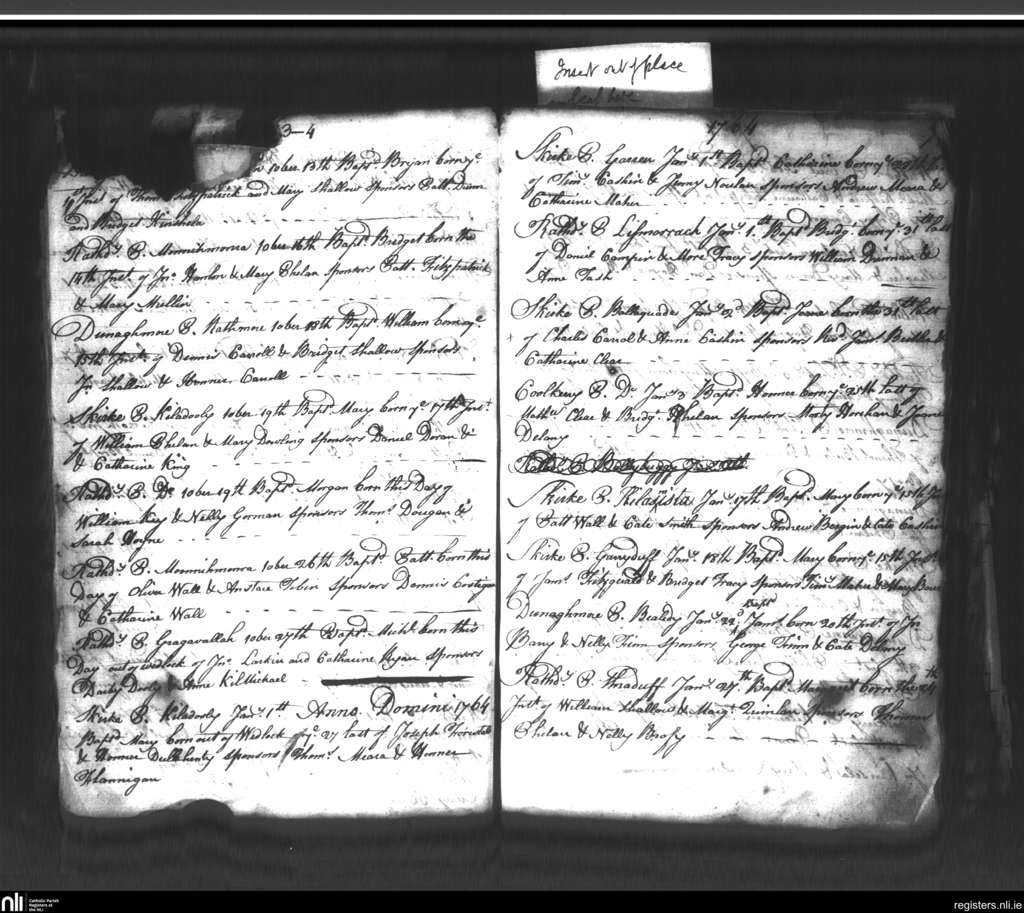 Insert out of place
leaf here
3-4
10ber 13th Bapd. Bryan born ye.
Inst. of Thoms. Fitzpatrick and Mary Shallow Sponsors Patt. Drum
and Bridget Kinshela
Rathdy. P. Monnihmorra 10ber 16th Bapd. Bridget born the
14th Inst. of Jno. Hanlon & Mary Phelan Sponsors Patt. Fitzpatrick
& Mary Mullin
Dunaghmore P. Rathmore 10ber 18th Bapd. William born ye.
15th Inst. of Dennis Carroll & Bridget Shallow Sponsors
Jn. Shallow & Honner Carroll
Skirke P. Kiladooly 10ber 19th Bapd. Mary born ye. 17th Inst.
of William Phelan & Mary Dowling Sponsors Daniel Doran &
& Catharine King
Rathdy. P. Do. 10ber 19th Bapd. Morgan born this Day of
William Key & Nelly Gorman Sponsors Thoms. Dougan &
Sarah Hoyne
Rathdy. P. Monnihmorra 10ber 26th Bapd. Patt. born this
Day of Oliver Wall & Anstace Tobin Sponsors Dennis Costigan
& Catharine Wall
Rathdy. P. Gragavallah 10ber 27th Bapd. Michl. born this
Day out of wedlock of Jno. Larkin and Catharine Ryan Sponsors
Darby Dooly & Anne Kilmichael
Skirke P. Kiladooly Jany. 1st Anno Domini 1764
Bapd. Mary born out of Wedlock ye. 27 last of Joseph
& Honner Dullhenty Sponsors Thoms. Meara & Honner
Hannigan
1764
Skirke P. Garren Jany. 1st Bapd. Catharine born ye. 29th
of Timy. Cashin & Jenny Nowlan Sponsors Andrew Meara &
Catharine Maher
Rathdy. P. Lismorrach Jany. 1st. Bapd. Bridg. born ye. 31st last
of Daniel Campin & More Tracy Sponsors William Drinnan &
Anne Tash
Skirke P. Balleguade Jany. 2d Bapd. Jeane born the 31st last
of Charles Carrol & Anne Cashin Sponsors
Catharine Clear
Coolkerry P. Do. Jany. 3 Bapd. Honner born ye. 28th last of
Mathw. Clear & Bridgt. Phelan Sponsors Morty Horahan &
Delany
Skirke P. Kilarista Jany. 17th Bapd. Mary born ye. 15th
of Patt Wall & Cate Smith Sponsors Andrew Bergin & Cate Cashin
Skirke P. Garryduff Jany. 18th Bapd. Mary born ye. 15th Inst.
of Jams. Fitzguald & Bridget Tracy Sponsors Timy. Maher & Mary
Dunaghmore P. Bealidy Jany. 22d Bapd. Jams. born 20th Inst. of Jn
Barry & Nelly Finn Sponsors George Finn & Cate Delany
Rathdy. P. Knaduff Jany. 27th Bapd. Margaret born the 24th
Inst. of William Shallow & Margt. Quinlan Sponsors Thomas
Phelan & Nelly Brophy
nli Catholic Parish
Registers at
the NLI
registers.nli.ie